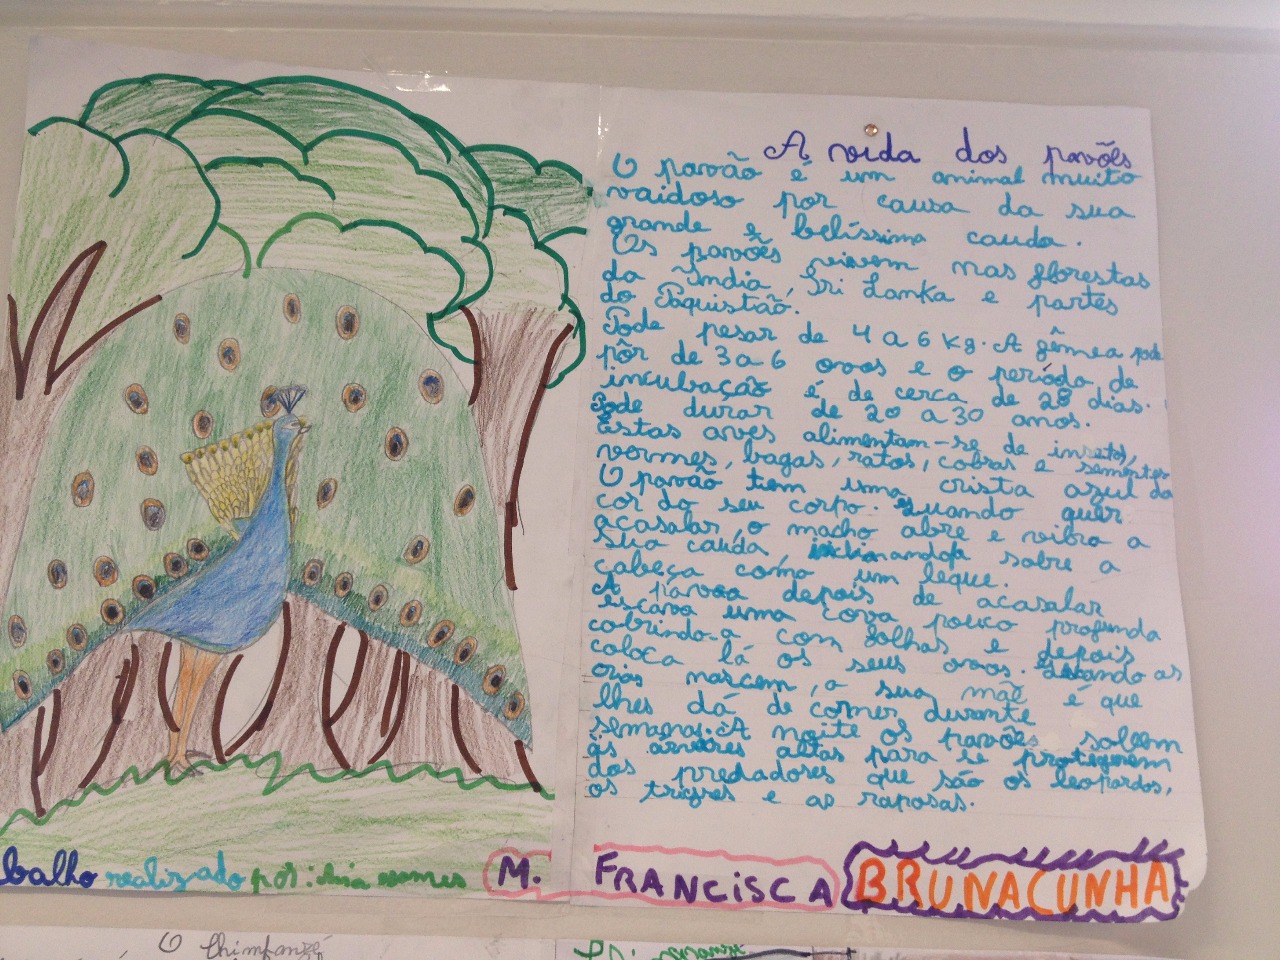 A vida dos pavões
O pavão é um animal muito
vaidoso por causa da sua
grande e belíssima cauda.
Os pavões vivem nas florestas
da Índia, Sri Lanka e partes
do Paquistão.
Pode pesar de 4 a 6 kg. A fêmea pode
pôr de 3 a 6 ovos e o período de
incubação é de cerca de 28 dias.
Pode durar de 20 a 30 anos.
Estas aves alimentam-se de insetos,
vormes, bagas, ratos, cobras e sementes
O pavão tem uma crista azul da
cor do seu corpo. Quando quer
acasalar, o macho abre e vibra a
sua cauda, inclinando-a sobre a
cabeça como um leque.
A pavoa depois de acasalar
escava uma cova pouco profunda
cobrindo-a com folhas e depois
coloca lá os seus ovos. Quando as
crias nascem, a sua mãe é que
lhes dá de comer durante
semanas. À noite os pavões sobem
às árvores altas para se protegerem
dos predadores que são os leopardos,
os trigres e as raposas.
balho realizado por: M. FRANCISCA BRUNA CUNHA
O Chimpanzé